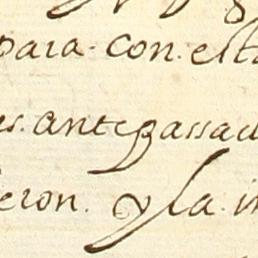 para. con. esta
es. antepassad
eron. y la. in